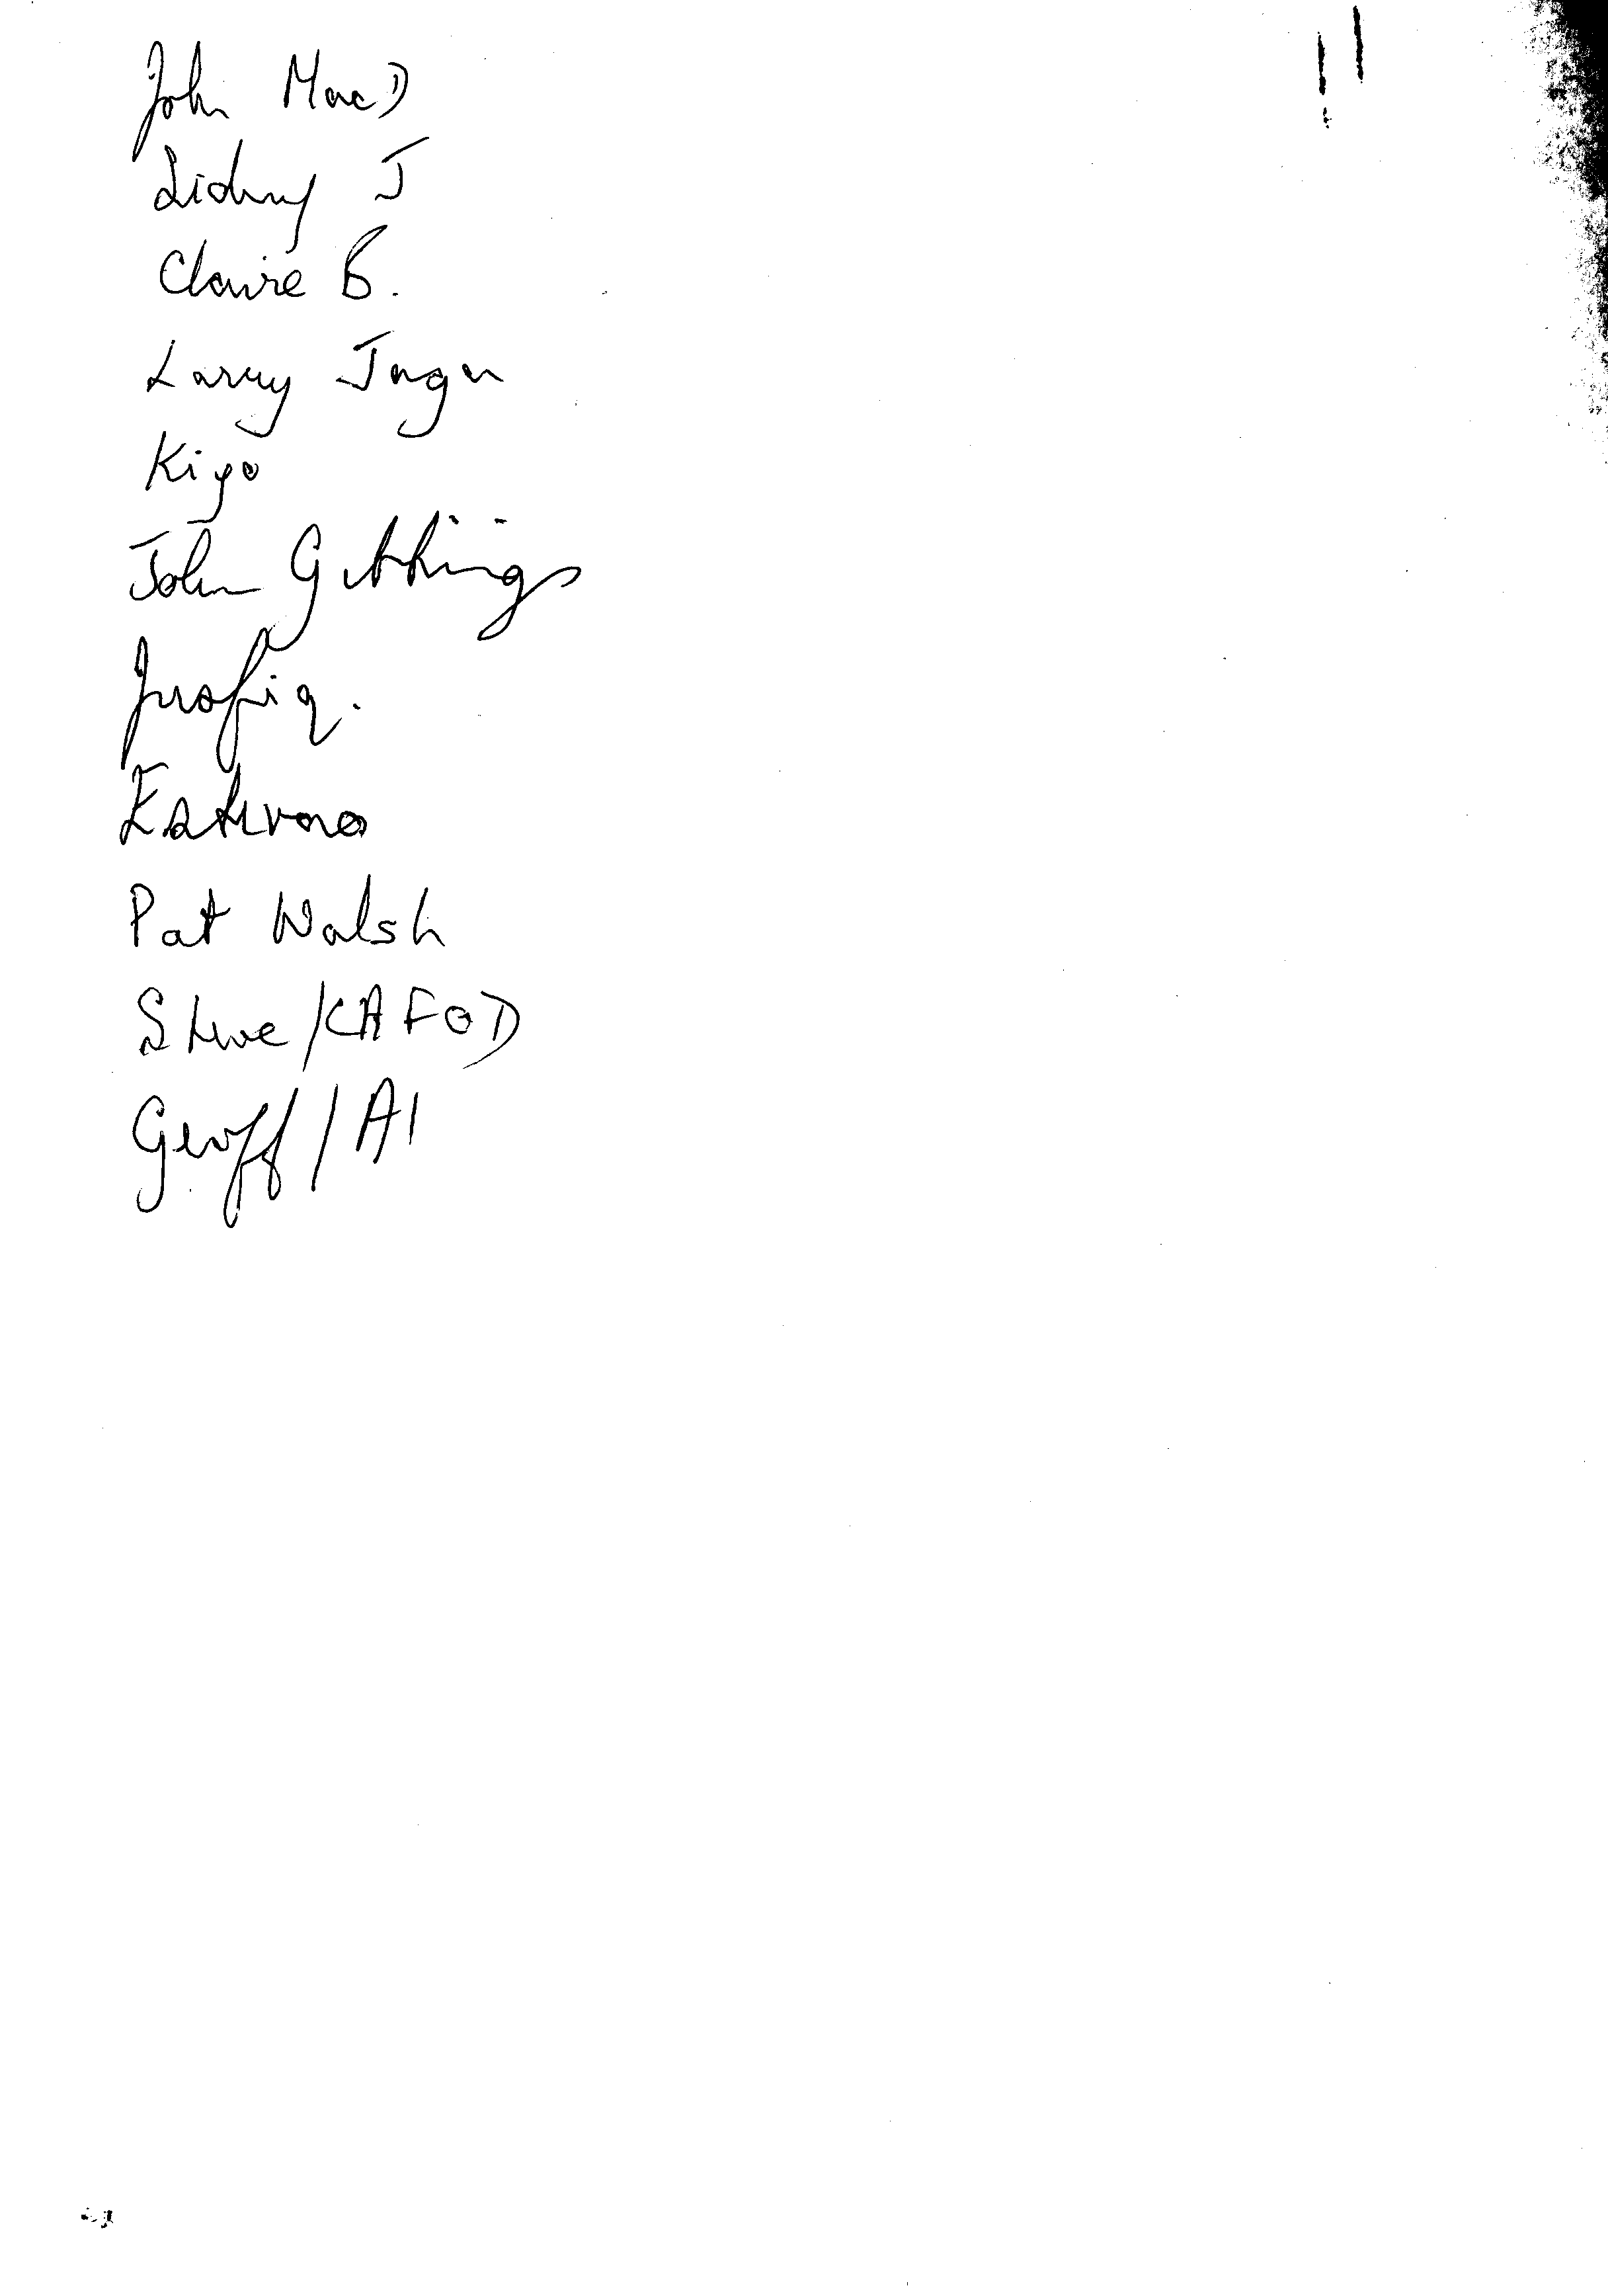 John MacD
Sidney J
Claire B.
Larry Jagan
Kiyo
John Gittings
Jusfiq.
Estevao
Pat Walsh
Steve/CAFOD
Geoff/AI